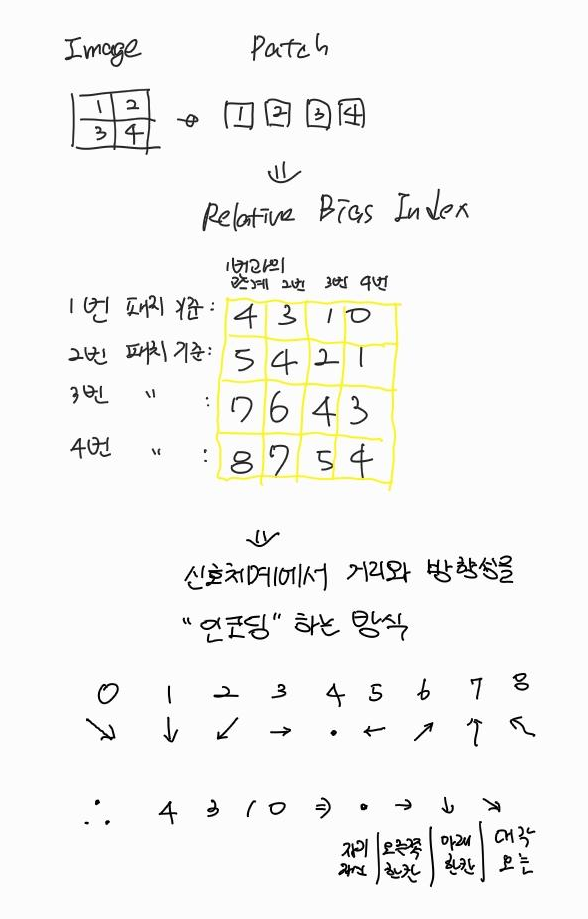 Image Patch
1 2 → 1 2 3 4
3 4
⇓
Relative Bias Index
1번과의
관계 2번 3번 4번
1번 패치 기준 : 4 3 1 0
2번 패치 기준 : 5 4 2 1
3번 〃 : 7 6 4 3
4번 〃 : 8 7 5 4
⇓
신호체계에서 거리와 방향성을
"인코딩" 하는 방식
0 1 2 3 4 5 6 7 8
↘ ↓ ↙ → · ← ↗ ↑ ↖
∴ 4 3 1 0 ⇒ · → ↓ ↘
자기 | 오른쪽 | 아래 | 대각
자신 | 한칸 | 한칸 | 오른